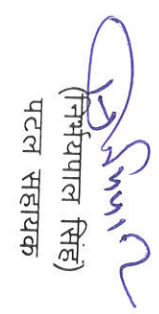 (निर्भयपाल सिंह)
पटल सहायक